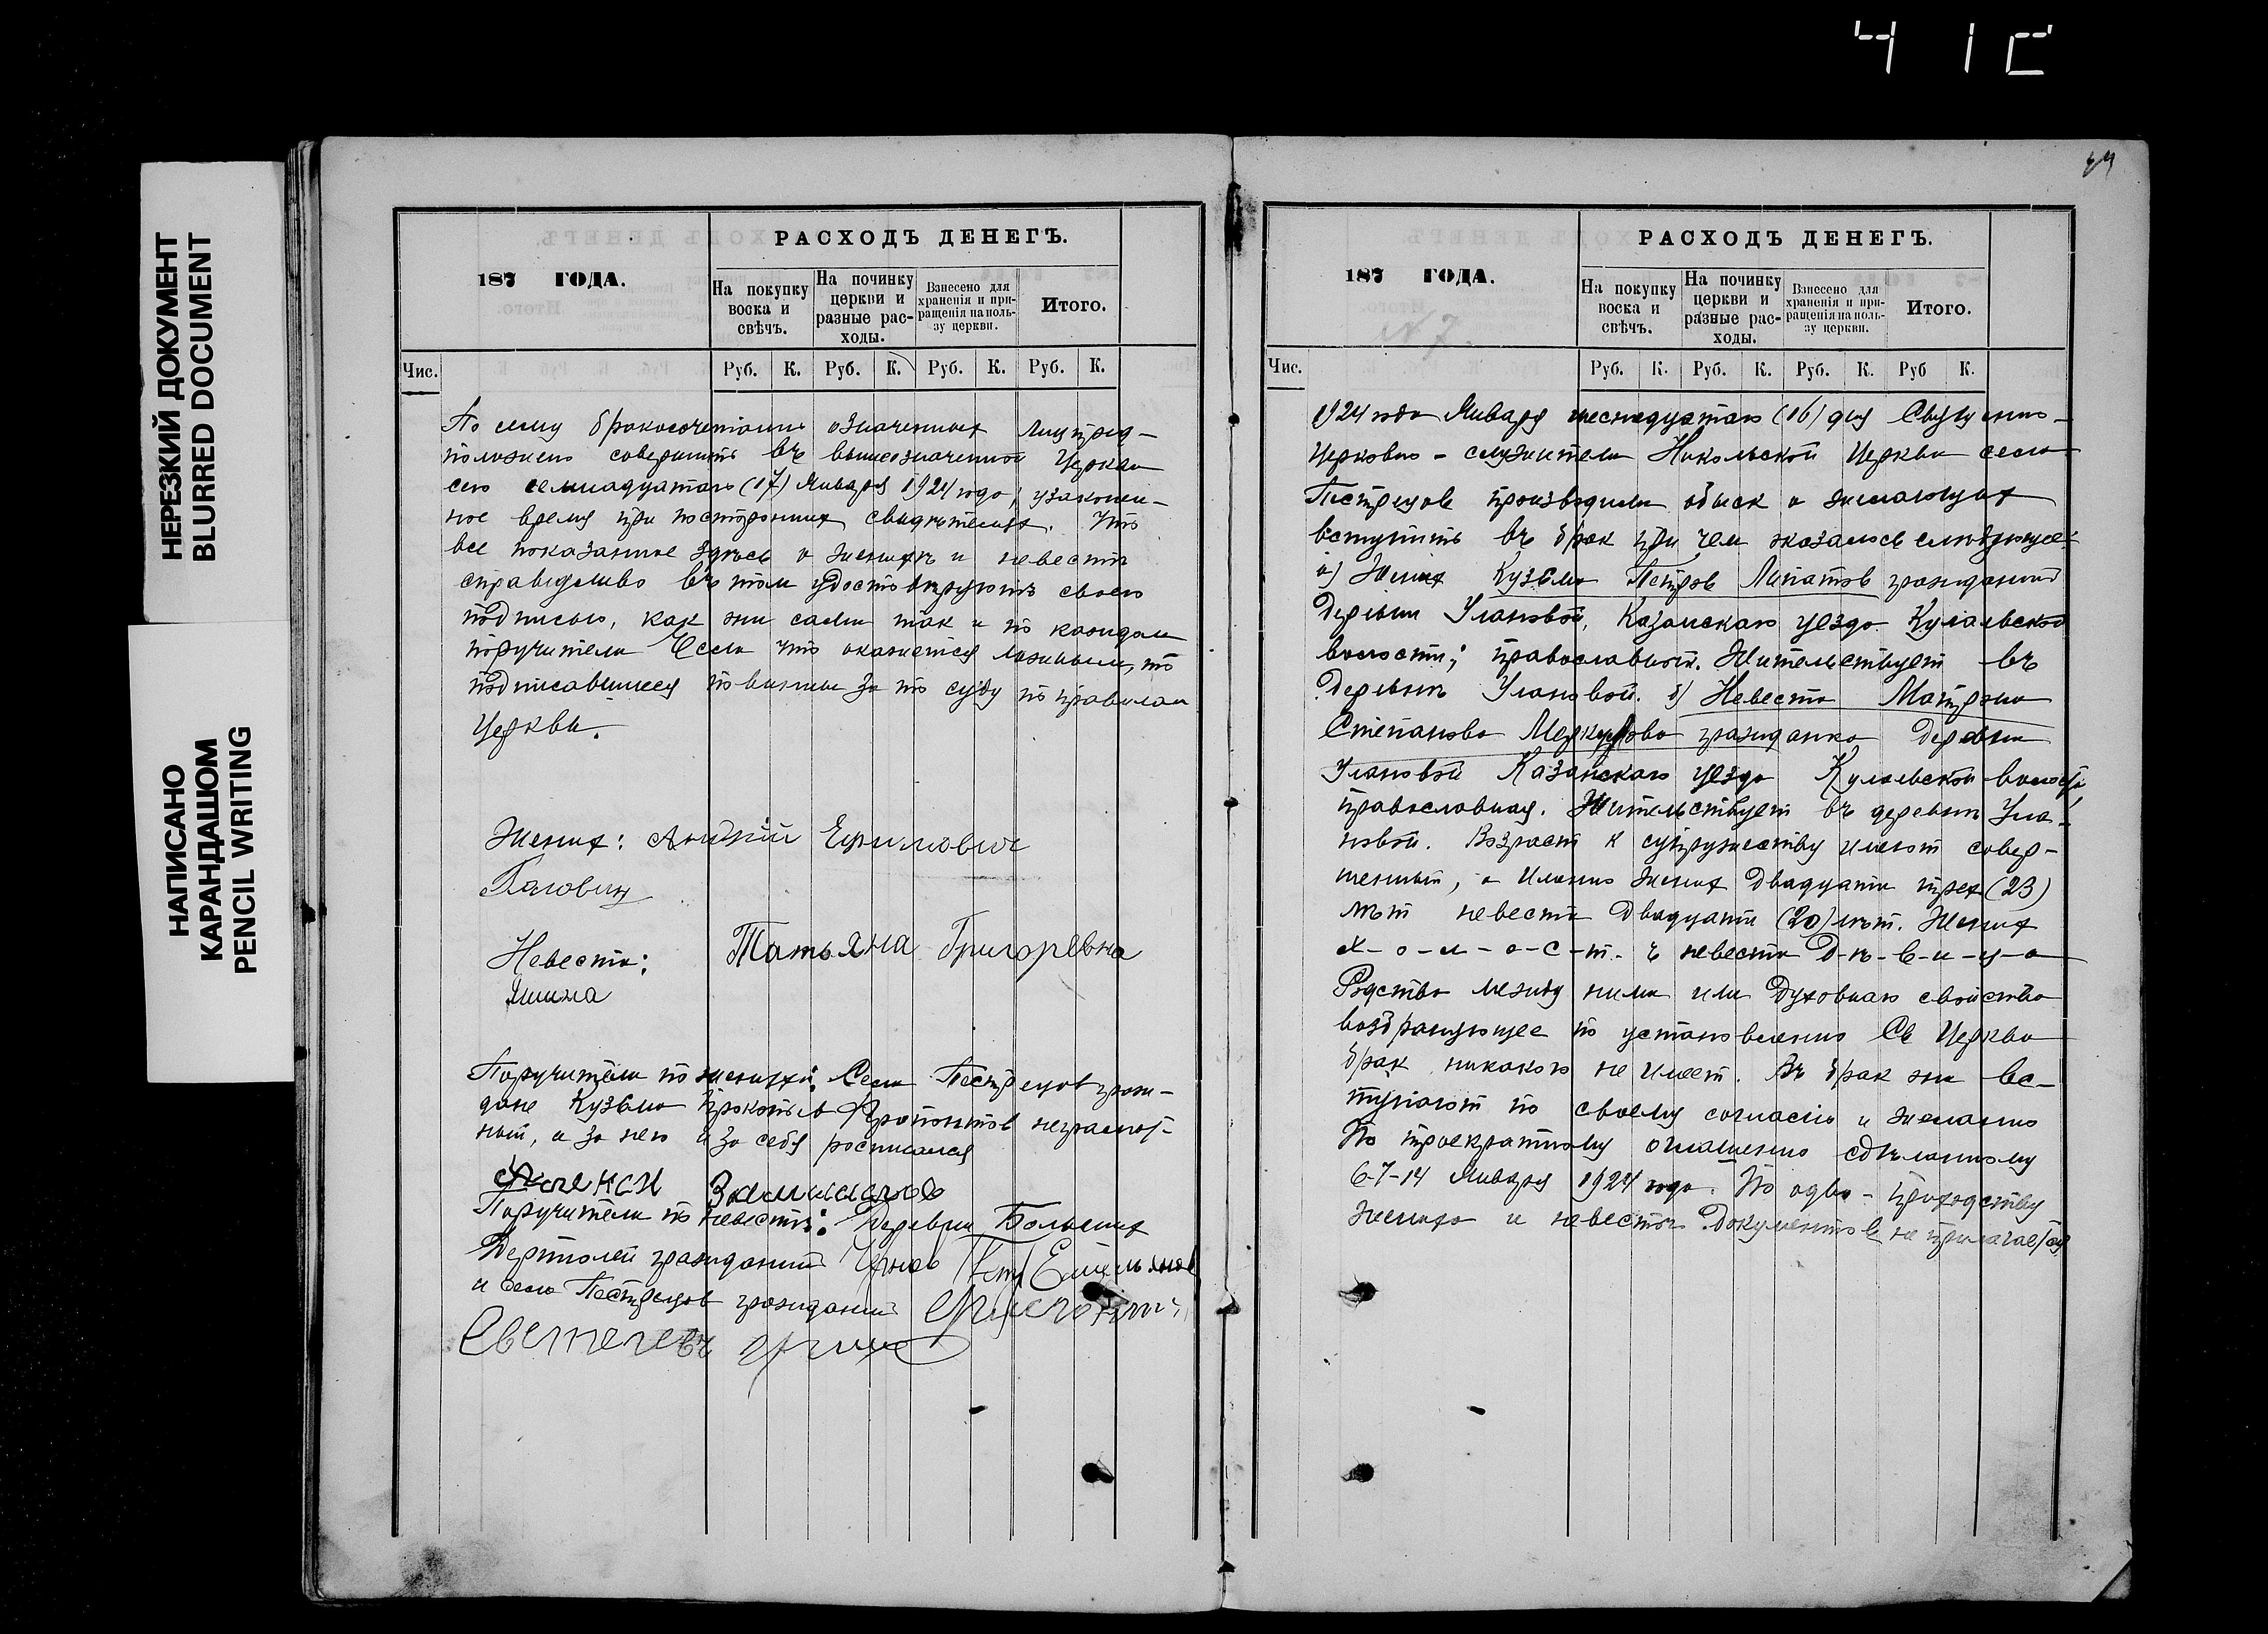 НЕРЕЗКИЙ ДОКУМЕНТ
BLURRED DOCUMENT
НАПИСАНО
КАРАНДАШОМ
PENCIL WRITING
РАСХОДЪ ДЕНЕГЪ.
187 ГОДА.
На покупку воска и свѣчъ.
На починку церкви и разные расходы.
Взнесено для храненія и приращенія на пользу церкви.
Итого.
Чис. Руб. К. Руб. К. Руб. К. Руб. К.
По сему бракосочетание означенных лиц пред-
положено совершить въ вышеозначенной Церкви
сего семнадцатаго (17) Января 1924 года, узаконен-
ное время при посторонних свидѣтелях. Что
все показанное здѣсь о женихѣ и невесте
справедливо въ том удостовѣряютъ своею
подписью, как они сами так и по каждом
поручители Если что окажется ложным, то
подписавшиеся повинны за то суду по правилам
Церкви.
Жених: Андрей Ефимович
Невеста: Татьяна Григоревна
Поручители по женихѣ: Села Пестрецов граж-
дане Кузьма Прокопьев неграмот-
ный, а за него и за себя росписался
Поручители по невестѣ: Деревни Больших
Дертюлей гражданин
и села Пестрецов гражданин
84
РАСХОДЪ ДЕНЕГЪ.
187 ГОДА.
N 7.
На покупку воска и свѣчъ.
На починку церкви и разные расходы.
Взнесено для храненія и приращенія на пользу церкви.
Итого.
Чис. Руб. К. Руб. К. Руб. К. Руб К.
1924 года Января шеснадцатаго (16) дня Священно-
Церковно-служители Никольской Церкви села
Пестрецов производили обыск о желающих
вступить въ брак при чем оказалось следующее:
а) Жених Кузьма Петров Липатов гражданин
Деревни Улановой, Казанскаго уезда Кулаевской
волости; православный. Жительствует въ
Деревнѣ Улановой. б) Невеста Матрона
Степанова Меркулова гражданка Деревни
Улановой Казанскаго уезда Кулаевской волости,
православная. Жительствует въ деревнѣ Ула-
новой. Возраст к супружеству имеют совер-
шенный, а именно жених двадцати трех (23)
лѣт невеста двадцати (20) лѣт. Жених
х-о-л-о-с-т. и невеста д-ѣ-в-и-ц-а
Родства между ними или духовнаго свойства
возбраняющее по установлению Св Церкви
брак никакого не имеет. Въ брак они вс-
тупают по своему согласию и желанию
По троекратному оглашению сдѣланному
6-7-14 Января 1924 года. По одно-приходству
жениха и невесты документов не прилагается